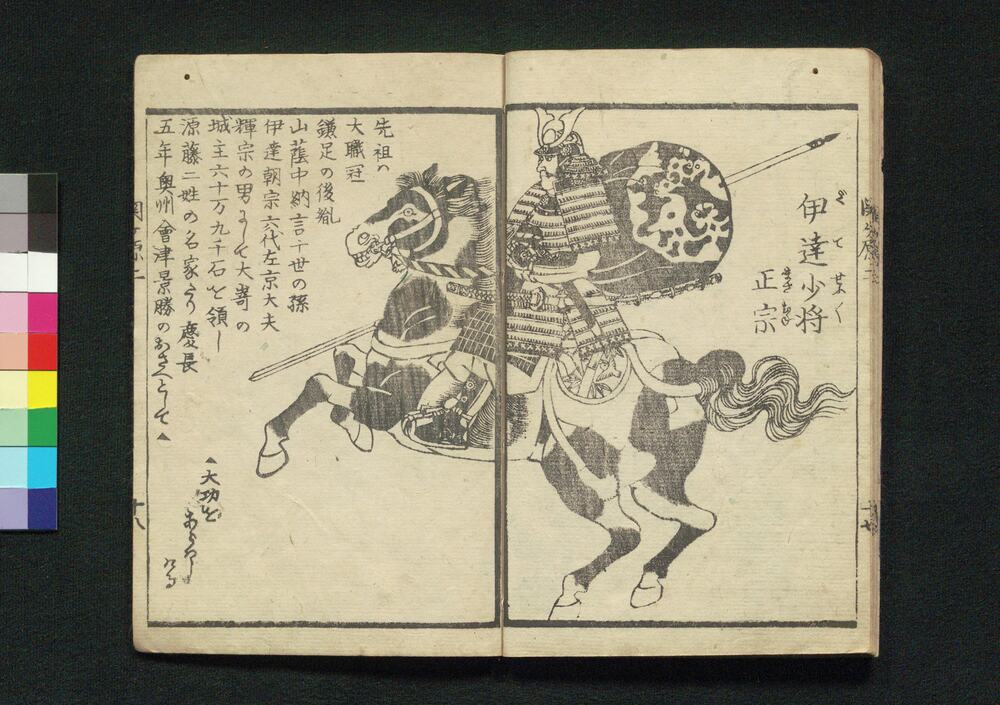 伊達少将
だてせう〳〵
正宗
まさむね
先祖ハ
大職冠
鎌足の後胤
山蔭中納言十世の孫
伊達朝宗六代左京大夫
輝宗の男にして大嵜の
城主六十万九千石を領し
源藤二姓の名家なり慶長
五年奥州會津景勝のおさへとして▲
▲大功を
あらハし
ける
十八